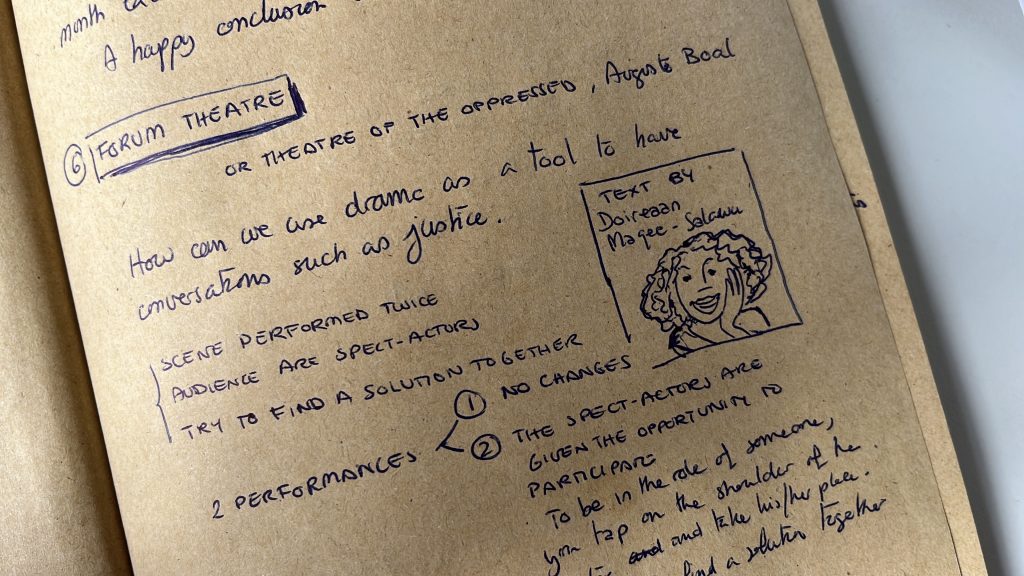 month
A happy conclusion
6 FORUM THEATRE
OR THEATRE OF THE OPPRESSED, Augusto Boal
How can we use drama as a tool to have
conversations such as justice.
TEXT BY
Doireann
Magee-Salawu
SCENE PERFORMED TWICE
AUDIENCE ARE SPECT-ACTORS
TRY TO FIND A SOLUTION TOGETHER
2 PERFORMANCES
1 NO CHANGES
2 THE SPECT-ACTORS ARE
GIVEN THE OPPORTUNITY TO
PARTICIPATE
To be in the role of someone,
you tap on the shoulder of the
and take his/her place.
find a solution together